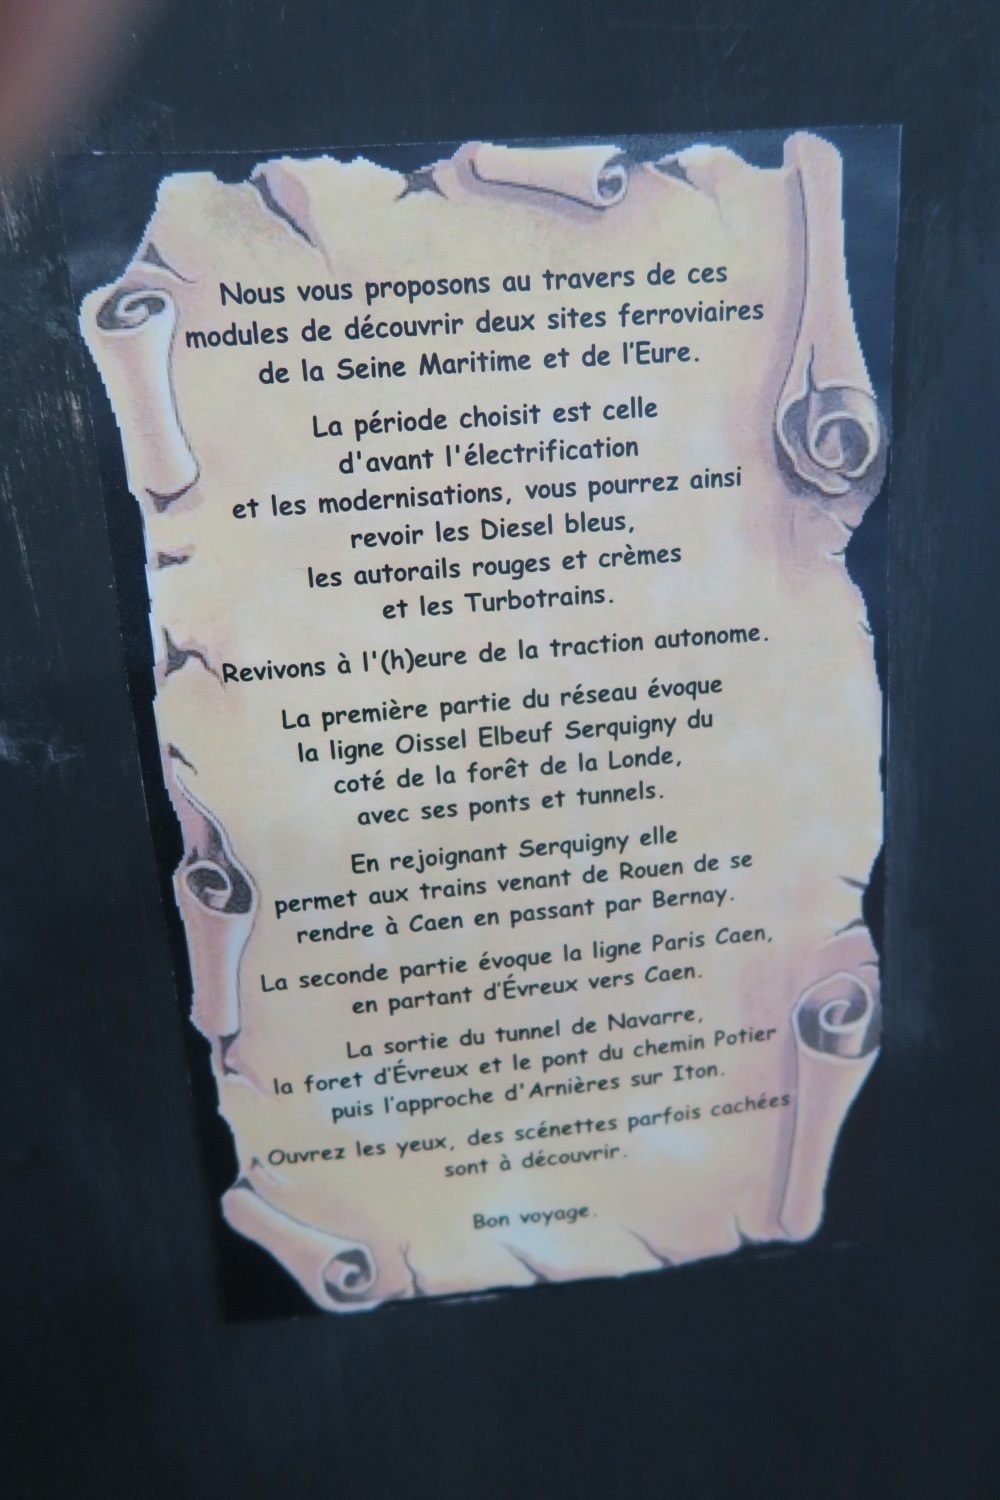 Nous vous proposons au travers de ces
modules de découvrir deux sites ferroviaires
de la Seine Maritime et de l'Eure.
La période choisit est celle
d'avant l'électrification
et les modernisations, vous pourrez ainsi
revoir les Diesel bleus,
les autorails rouges et crèmes
et les Turbotrains.
Revivons à l'(h)eure de la traction autonome.
La première partie du réseau évoque
la ligne Oissel Elbeuf Serquigny du
coté de la forêt de la Londe,
avec ses ponts et tunnels.
En rejoignant Serquigny elle
permet aux trains venant de Rouen de se
rendre à Caen en passant par Bernay.
La seconde partie évoque la ligne Paris Caen,
en partant d'Évreux vers Caen.
La sortie du tunnel de Navarre,
la foret d'Évreux et le pont du chemin Potier
puis l'approche d'Arnières sur Iton.
Ouvrez les yeux, des scénettes parfois cachées
sont à découvrir.
Bon voyage.